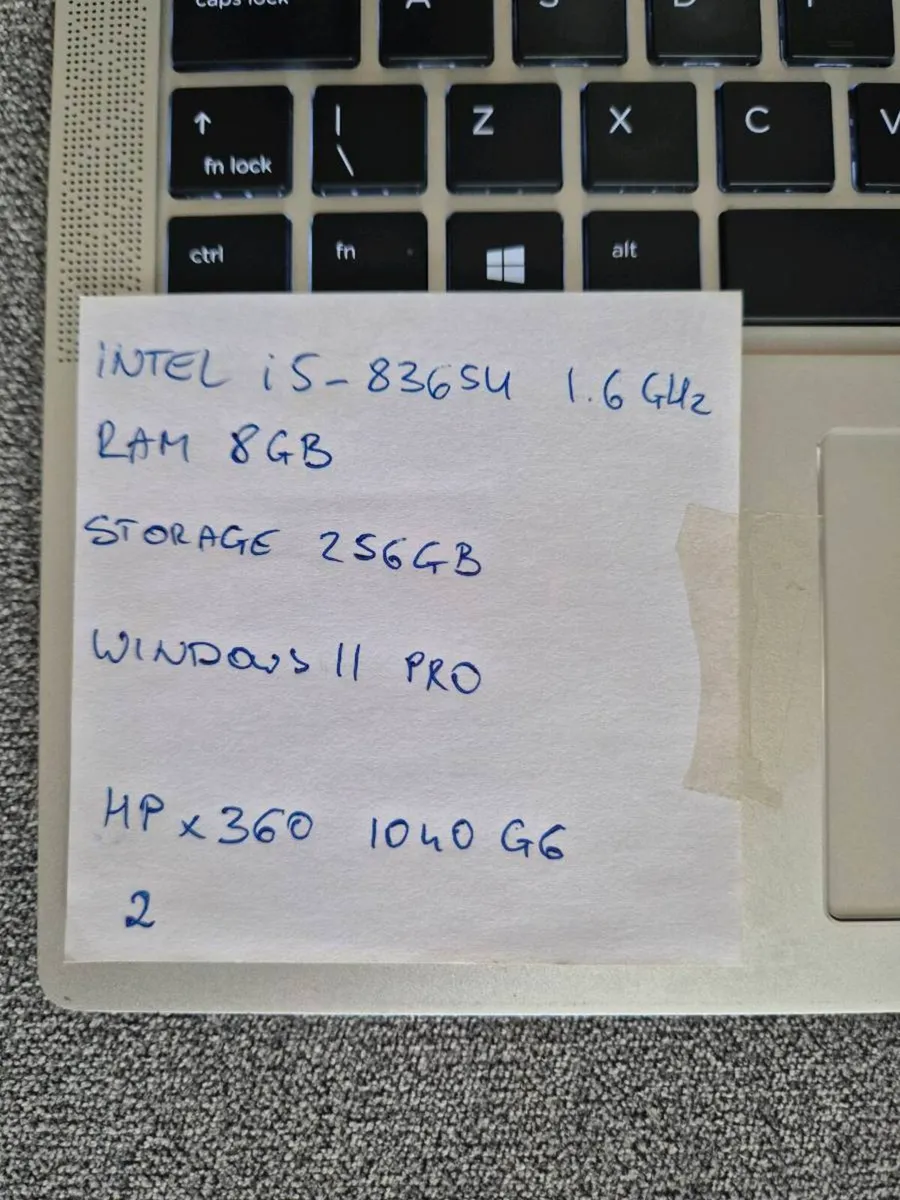 caps lock A S D F
↑ fn lock | \ Z X C V
ctrl fn alt
INTEL i5-8365U 1.6 GHz
RAM 8GB
STORAGE 256GB
WINDOWS 11 PRO
HP x360 1040 G6
2